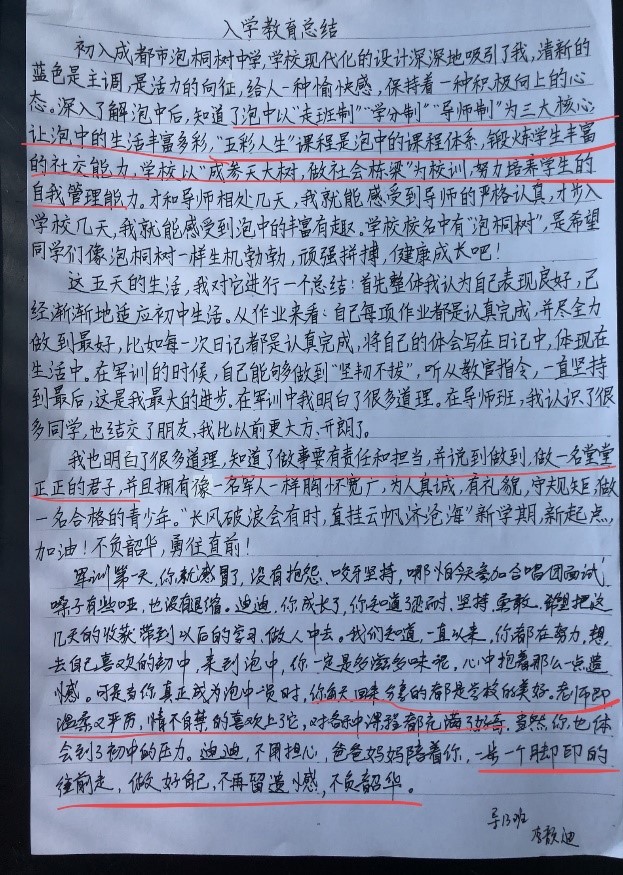 入学教育总结
初入成都市泡桐树中学,学校现代化的设计深深地吸引了我,清新的
蓝色是主调,是活力的向征,给人一种愉快感,保持着一种积极向上的心
态。深入了解泡中后,知道了泡中以“走班制”“学分制”“导师制”为三大核心
让泡中的生活丰富多彩,“五彩人生”课程是泡中的课程体系,锻炼学生丰富
的社交能力,学校以“成参天大树,做社会栋梁”为校训,努力培养学生的
自我管理能力。才和导师相处几天,我就能感受到导师的严格认真,才步入
学校几天,我就能感受到泡中的丰富有趣。学校校名中有“泡桐树”,是希望
同学们像泡桐树一样生机勃勃,顽强拼搏,健康成长吧!
这五天的生活,我对它进行一个总结:首先整体我认为自己表现良好,已
经渐渐地适应初中生活。从作业来看:自己每项作业都是认真完成,并尽全力
做到最好,比如每一次日记都是认真完成,将自己的体会写在日记中,体现在
生活中。在军训的时候,自己能够做到“坚韧不拔”,听从教官指令,一直坚持
到最后,这是我最大的进步。在军训中我明白了很多道理。在导师班,我认识了很
多同学,也结交了朋友,我比以前更大方、开朗了。
我也明白了很多道理,知道了做事要有责任和担当,并说到做到,做一名堂堂
正正的君子,并且拥有像一名军人一样胸怀宽广,为人真诚,有礼貌,守规矩,做
一名合格的青少年。“长风破浪会有时,直挂云帆济沧海”新学期,新起点,
加油!不负韶华,勇往直前!
军训第一天,你就感冒了,没有抱怨、咬牙坚持,哪怕今天参加合唱团面试,
嗓子有些哑,也没有退缩。迪迪,你成长了,你知道了忍耐、坚持、勇敢。希望把这
几天的收获带到以后的学习、做人中去。我们知道,一直以来,你都在努力,想
去自己喜欢的初中,来到泡中,你一定是多滋多味祝,心中抱着那么一点遗
憾。可是当你真正成为泡中一员时,你每天回来分享的都是学校的美好。老师即
温柔又严厉,情不自禁的喜欢上了它,对各中课程都充满了好奇。当然,你也体
会到了初中的压力。迪迪,不用担心,爸爸妈妈陪着你,一步一个脚印的
往前走,做好自己,不再留遗憾,不负韶华。
导13班
李歆迪